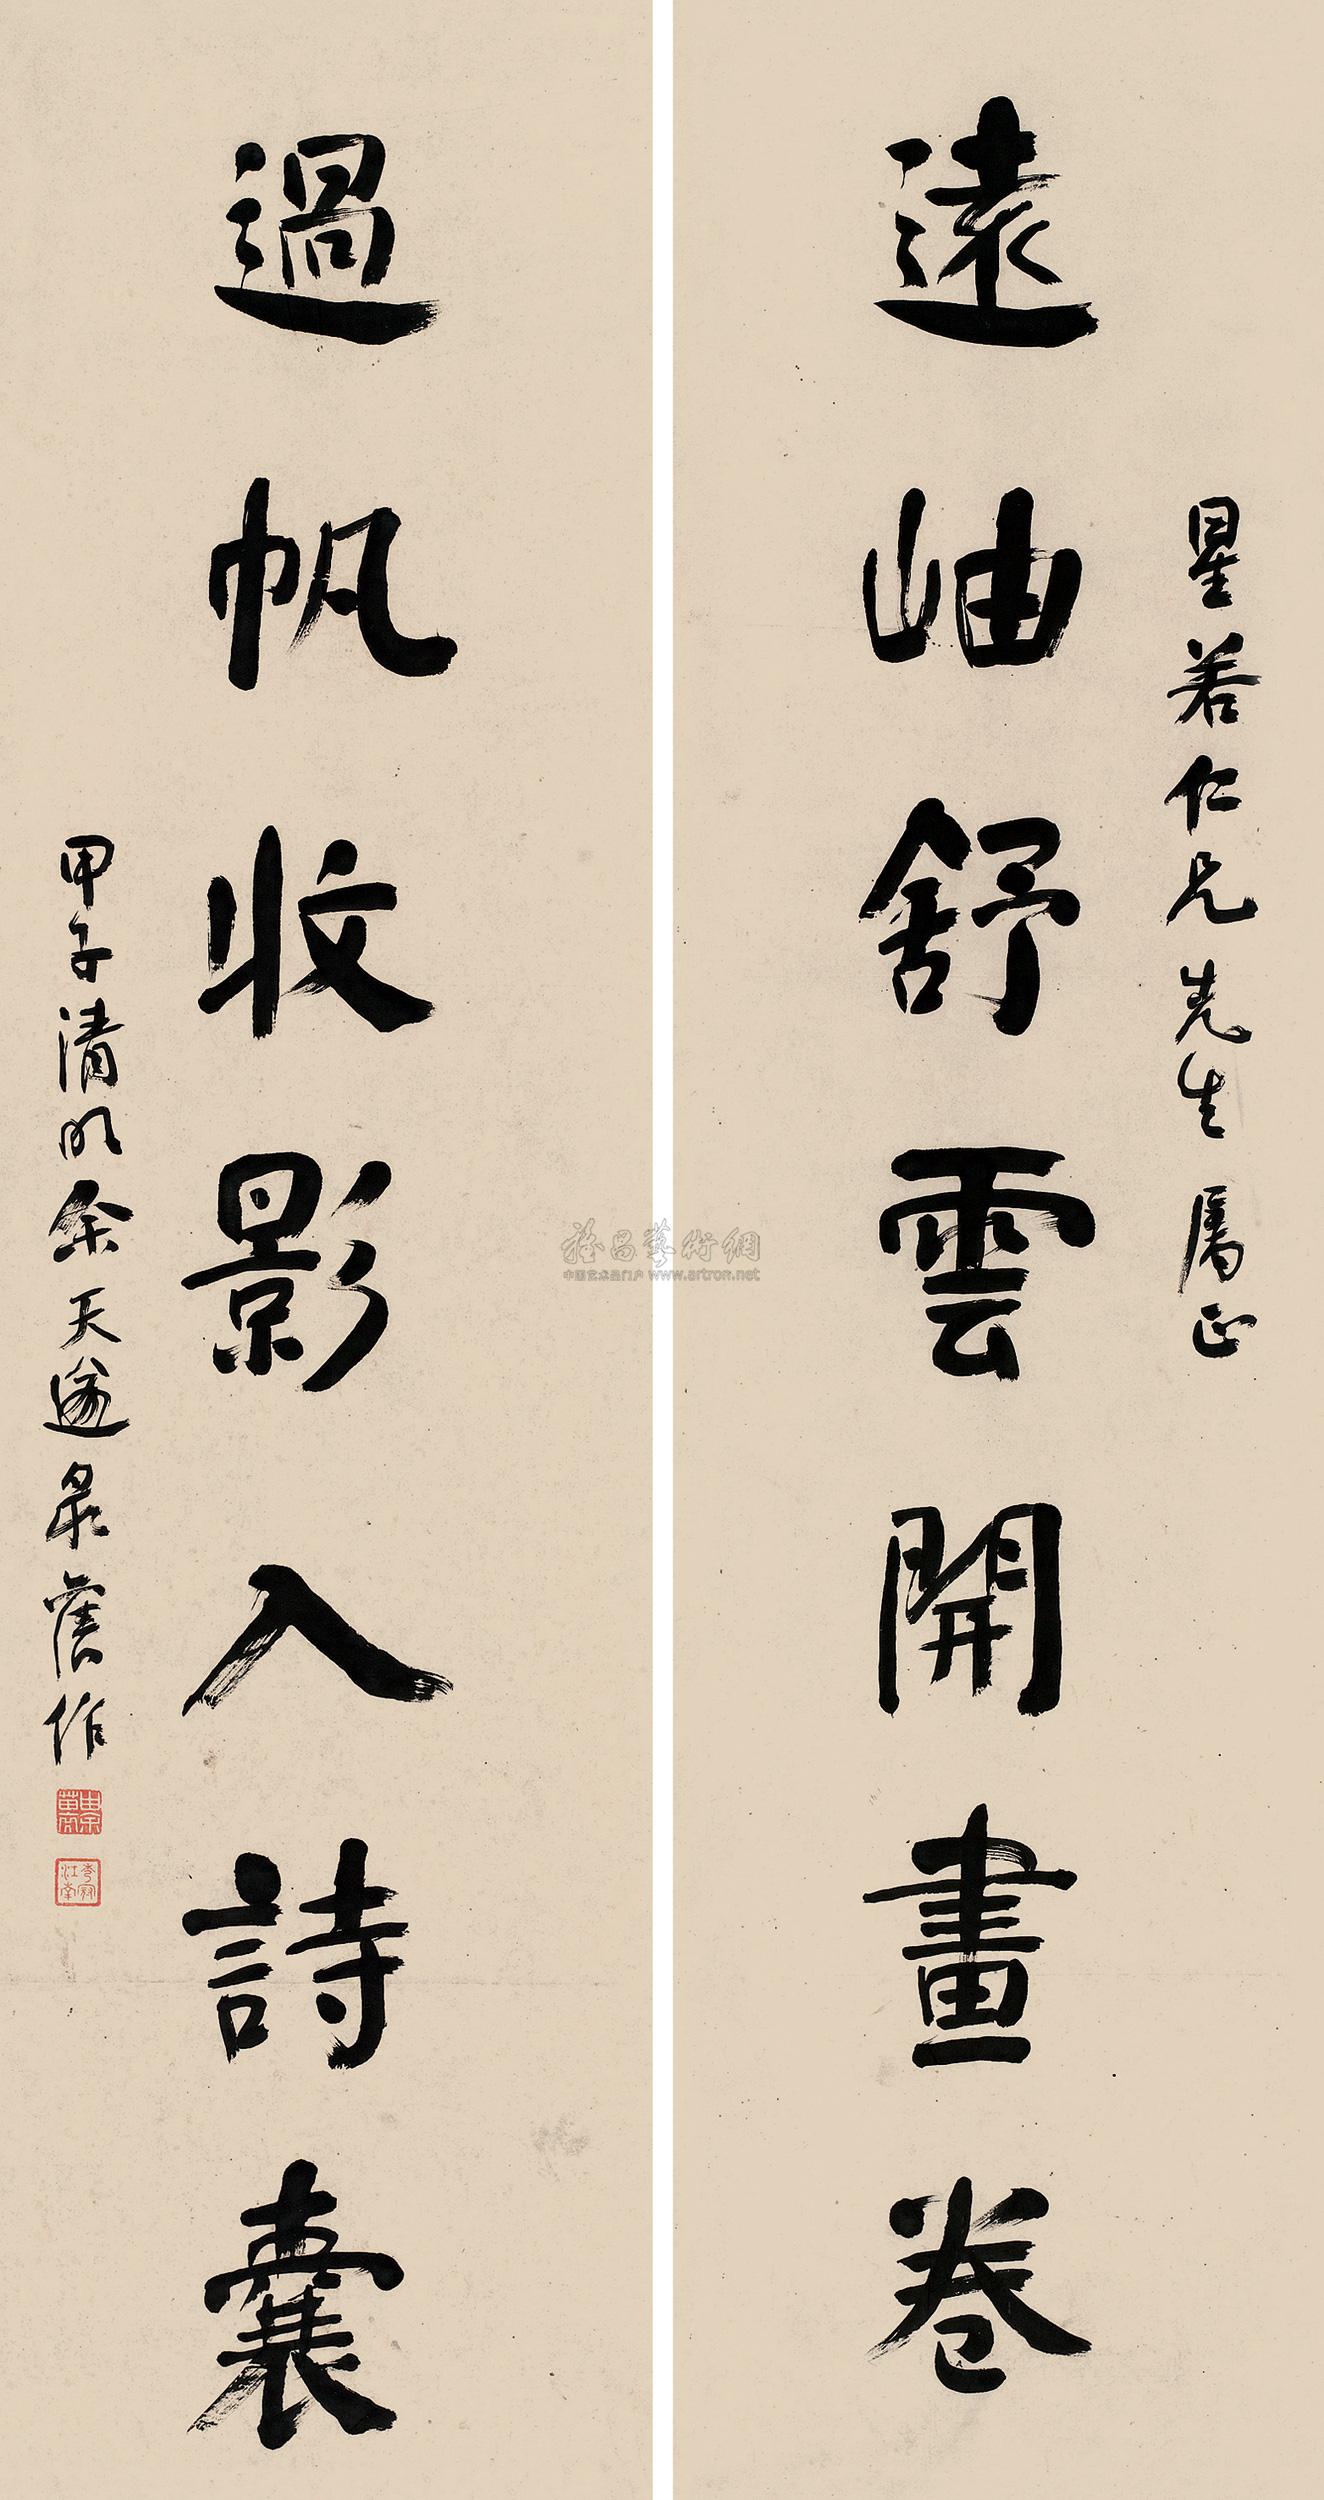 星若仁兄先生屬正
遠岫舒雲開畫卷
過帆收影入詩囊
甲子清明余天遂
雅昌藝術網
中国艺术品门户 www.artron.net